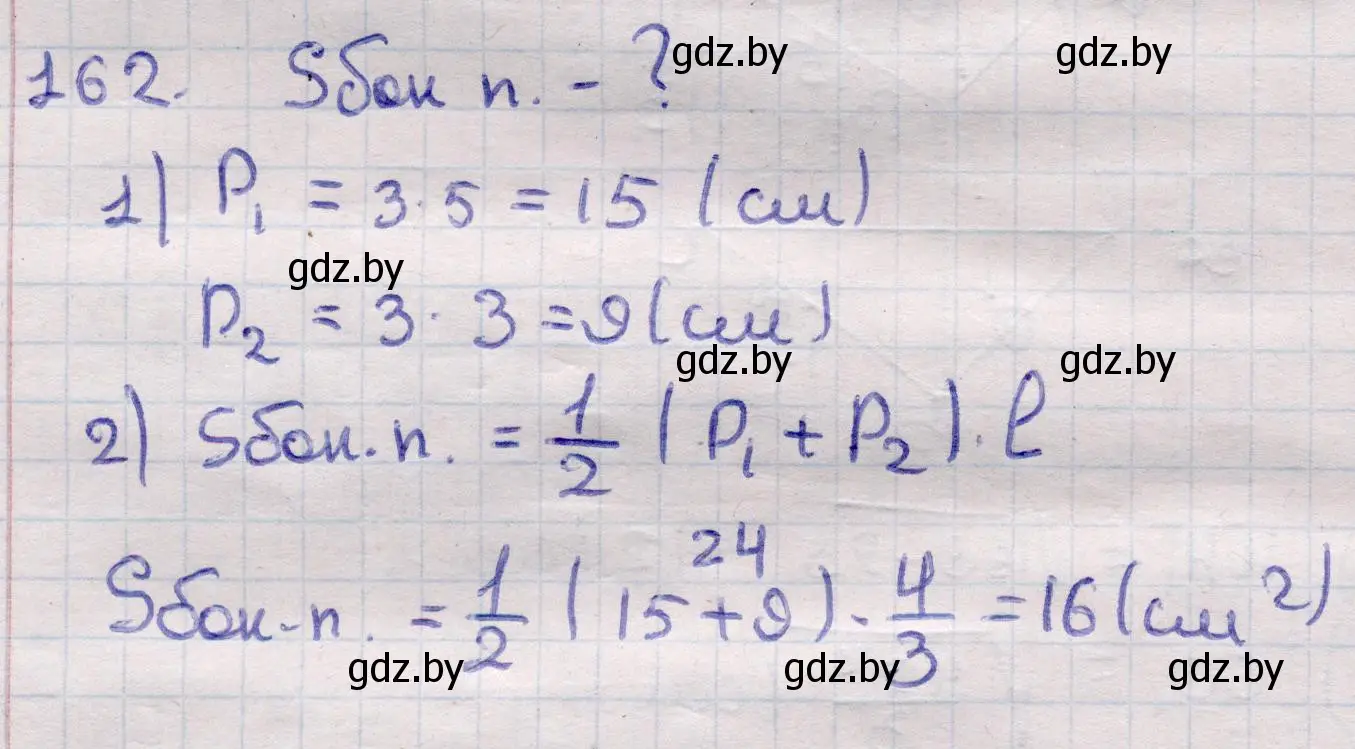 162. Sбок п. - ? gdz.by gdz.by
1) P₁ = 3·5 = 15 (см)
gdz.by
P₂ = 3·3 = 9 (см)
gdz.by gdz.by
2) Sбок.п. = 1/2 (P₁ + P₂)·l
24
Sбок.п. = 1/2 (15 + 9)·4/3 = 16 (см²)
gdz.by gdz.by gdz.by